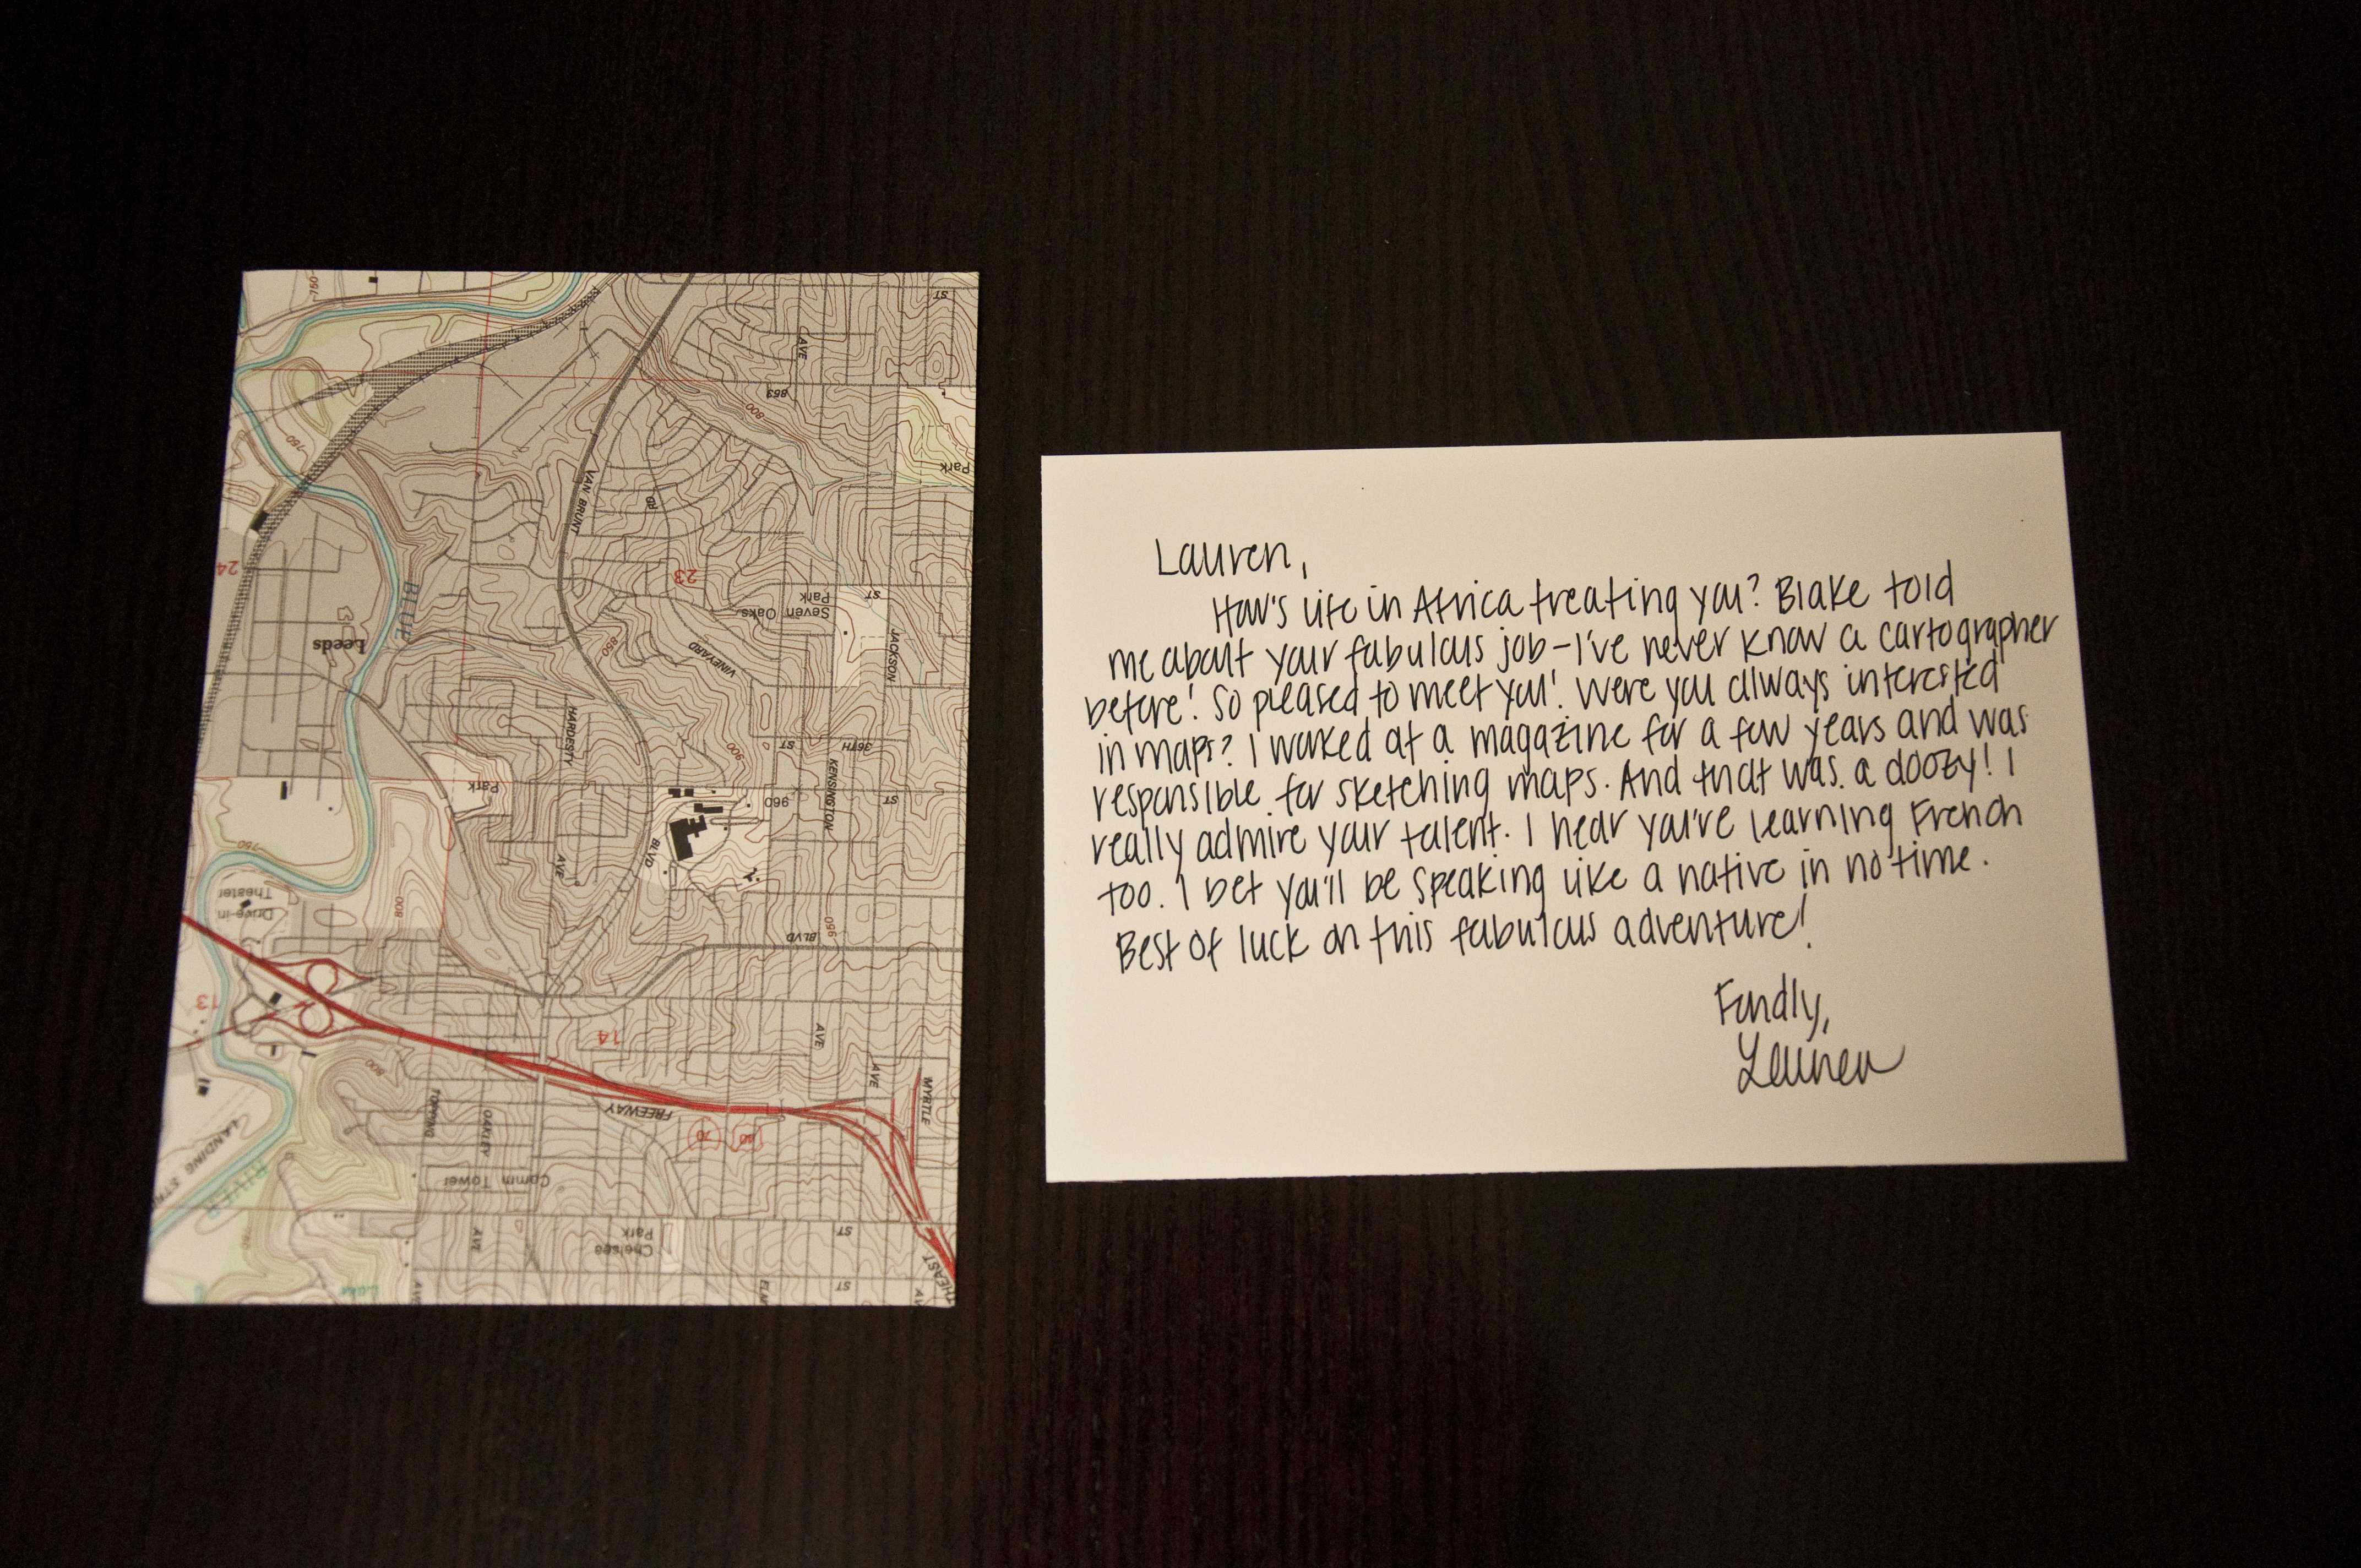 ST
750
AVE
853
800
Park
750
VAN BRUNT
RD
24
23
ST
Seven Oaks
Park
BLUE
Leeds
850
VINEYARD
JACKSON
HARDESTY
900
ST
36TH
Park
960
KENSINGTON
ST
750
BLVD
AVE
Drive-in
Theater
800
950
BLVD
13
14
AVE
800
AVE
MYRTLE
FREEWAY
TOPPING
OAKLEY
70
40
LANDING STR
RIVER
Comm Tower
AVE
Chelsea
Park
ST
AVE
ELM
ST
Lake
Lauren,
How's life in Africa treating you? Blake told
me about your fabulous job-I've never know a cartographer
before! So pleased to meet you! Were you always interested
in maps? I worked at a magazine for a few years and was
responsible for sketching maps. And that was a doozy! I
really admire your talent. I hear you're learning French
too. I bet you'll be speaking like a native in no time.
Best of luck on this fabulous adventure!
Fondly,
Lauren